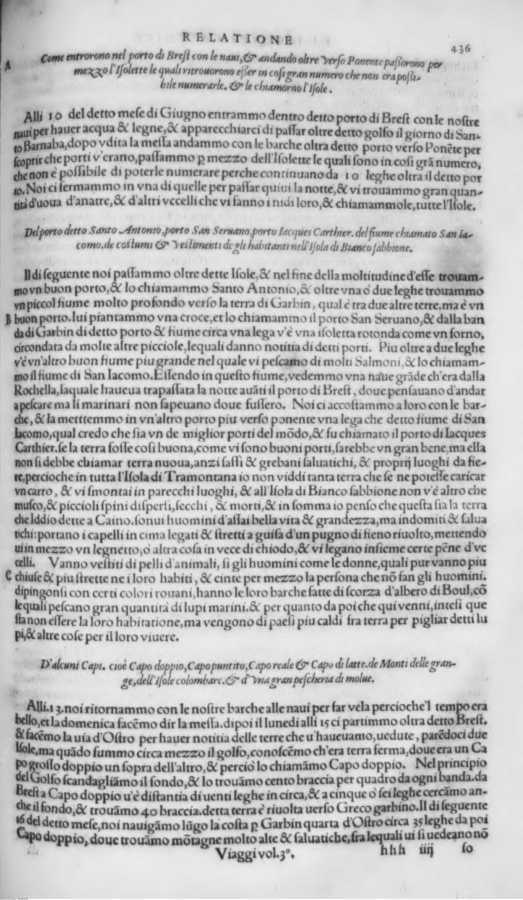 RELATIONE
436
A Come entrorono nel porto di Brest con le naui, & andando oltre verso Ponente passorono per
mezzo l'Isolette le quali vitrouorono esser in cosi gran numero che non era possi-
bile numerarle. & le chiamorno l'Isole.
Alli 10 del detto mese di Giugno entrammo dentro detto porto di Brest con le nostre
naui per hauer acqua & legne, & apparecchiarci di passar oltre detto golfo il giorno di San-
to Barnaba, dopo vdita la messa andammo con le barche oltra detto porto verso Ponēte per
scoprir che porti v'erano, passammo p mezzo dell'Isolette le quali sono in cosi grā numero,
che non e possibile di poterle numerare perche continuano da 10 leghe oltra il detto por
to. Noi ci fermammo in vna di quelle per passar quiui la notte, & vi trouammo gran quan-
tità d'oua d'anatre, & d'altri vccelli che vi fanno i nidi loro, & chiamammole, tutte l'Isole.
Del porto detto Santo Antonio, porto San Seruano, porto Iacques Carthier. del fiume chiamato San Ia-
como, de costumi & vestimenti de gli habitanti nell'Isola di Bianco sabbione.
Il dì seguente noi passammo oltre dette Isole, & nel fine della moltitudine d'esse trouam-
mo vn buon porto, & lo chiamammo Santo Antonio, & oltre vna ò due leghe trouammo
vn piccol fiume molto profondo verso la terra di Garbin, qual è tra due altre terre. ma è vn
B buon porto. lui piantammo vna croce, et lo chiamammo il porto San Seruano, & dalla ban
da di Garbin di detto porto & fiume circa vna lega v'è vna isoletta rotonda come vn forno,
circondata da molte altre picciole, lequali danno notitia di detti porti. Piu oltre a due leghe
v'è vn'altro buon fiume piu grande nel quale vi pescamo di molti Salmoni, & lo chiamam-
mo il fiume di San Iacomo. Essendo in questo fiume, vedemmo vna naue grāde ch'era dalla
Rochella, laquale haueua trapassata la notte auāti il porto di Brest, doue pensauano d'andar
a pescare ma li marinari non sapeuano doue fussero. Noi ci accostammo a loro con le bar-
che, & la metttemmo in vn'altro porto piu verso ponente vna lega che detto fiume di San
Iacomo, qual credo che sia vn de miglior porti del mōdo, & fu chiamato il porto di Iacques
Carthier. se la terra fosse cosi buona, come vi sono buoni porti, sarebbe vn gran bene, ma ella
non si debbe chiamar terra nuoua, anzi sassi & grebani saluatichi, & proprij luoghi da fie-
re, percioche in tutta l'Isola di Tramontana io non viddi tanta terra che se ne potesse caricar
vn carro, & vi smontai in parecchi luoghi, & all'Isola di Bianco sabbione non v'è altro che
musco, & piccioli spini dispersi, secchi, & morti, & in somma io penso che questa sia la terra
che Iddio dette a Caino. sonui huomini d'assai bella vita & grandezza, ma indomiti & salua
tichi: portano i capelli in cima legati & stretti a guisa d'un pugno di fieno riuolto, mettendo
ui in mezzo vn legnetto, ò altra cosa in vece di chiodo, & vi legano insieme certe pēne d'vc
celli. Vanno vestiti di pelli d'animali, si gli huomini come le donne, quali pur vanno piu
C chiuse & piu strette ne i loro habiti, & cinte per mezzo la persona che nō fan gli huomini.
dipingonsi con certi colori rouani, hanno le loro barche fatte di scorza d'albero di Boul, cō
le quali pescano gran quantità di lupi marini. & per quanto da poi che qui venni, intesi que
sta non essere la loro habitatione, ma vengono di paesi piu caldi fra terra per pigliar detti lu
pi, & altre cose per il loro viuere.
D'alcuni Capi. cioè Capo doppio, Capo puntito, Capo reale & Capo di latte. de Monti delle gran-
ge, dell'Isole colombare. & d'vna gran peschersa di molue.
Alli. 13. noi ritornammo con le nostre barche alle naui per far vela percioche'l tempo era
bello, et la domenica facēmo dir la messa. dipoi il lunedi alli 15 ci partimmo oltra detto Brest.
& facēmo la uia d'Ostro per hauer notitia delle terre che u'haueuamo, uedute, parēdoci due
Isole, ma quādo fummo circa mezzo il golfo, conoscēmo ch'era terra ferma, doue era un Ca
po grosso doppio un sopra dell'altro, & perciò lo chiamāmo Capo doppio. Nel principio
del Golfo scandagliāmo il fondo, & lo trouāmo cento braccia per quadro da ogni banda. da
Brest a Capo doppio u'è distantia di uenti leghe in circa, & a cinque ò sei leghe cercāmo an-
che il fondo, & trouāmo 40 braccia. detta terra è riuolta uerso Greco garbino. Il dì seguente
16 del detto mese, noi nauigāmo lūgo la costa p Garbin quarta d'Ostro circa 35 leghe da poi
Capo doppio, doue trouāmo mōtagne molto alte & saluatiche, fra lequali ui si uedeano nō
Viaggi vol. 3°. hhh iiij so